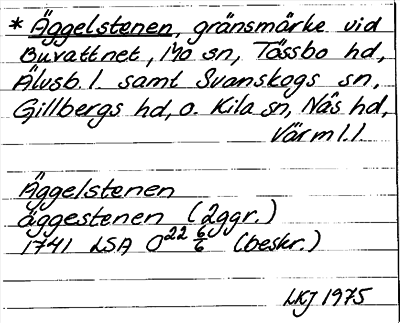 * Äggelstenen, gränsmärke vid
Buvattnet, Mo sn, Tössbo hd,
Älvsb. l. samt Svanskogs sn,
Gillbergs hd, o. Kila sn, Näs hd,
Värml. l.
Äggelstenen
äggestenen (2ggr.)
1741 LSA O22 6/6 (beskr.)
LKJ 1975